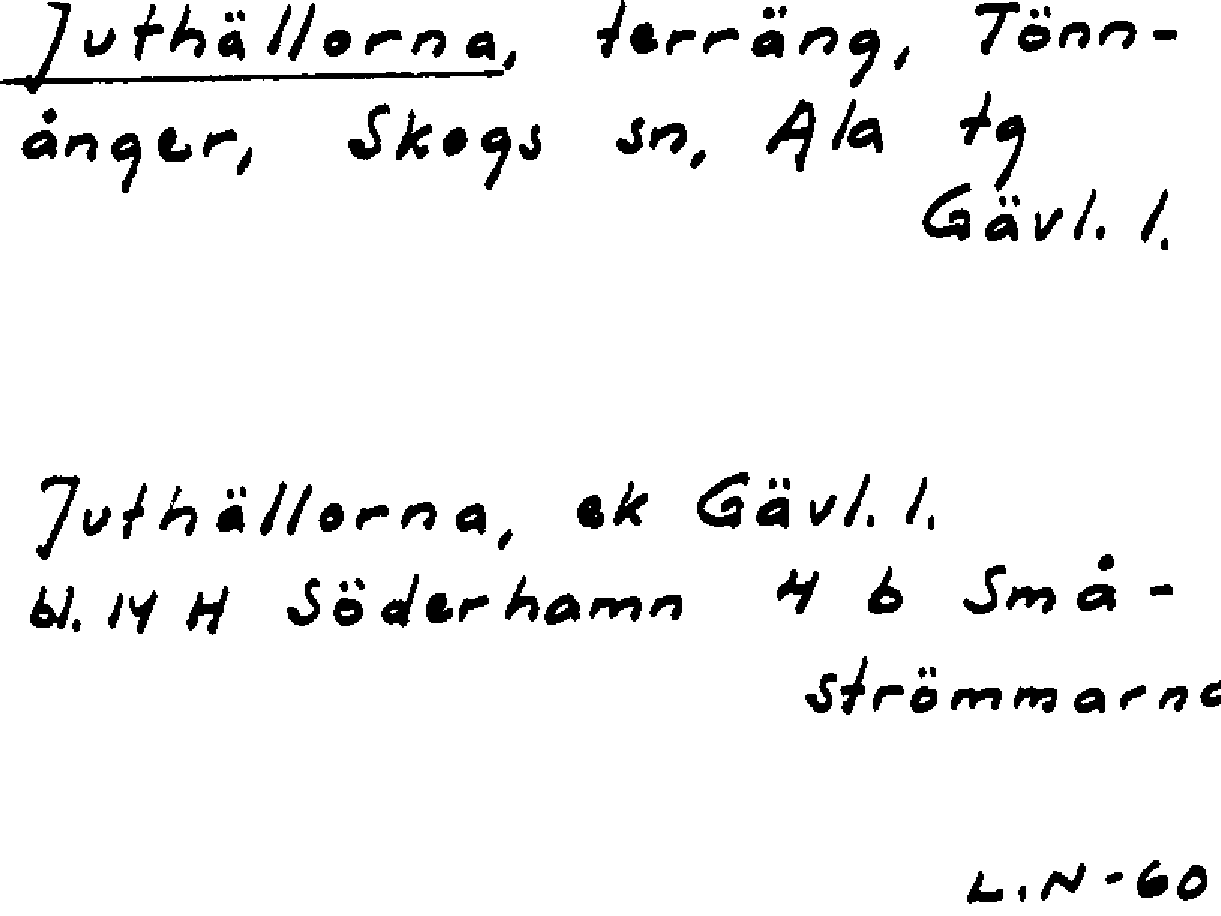 Juthällorna, terräng, Tönn-
ånger, Skogs sn, Ala tg
Gävl. l.
Juthällorna, ek Gävl. l.
bl. 14 H Söderhamn 4 b Små-
strömmarna
L.N-60